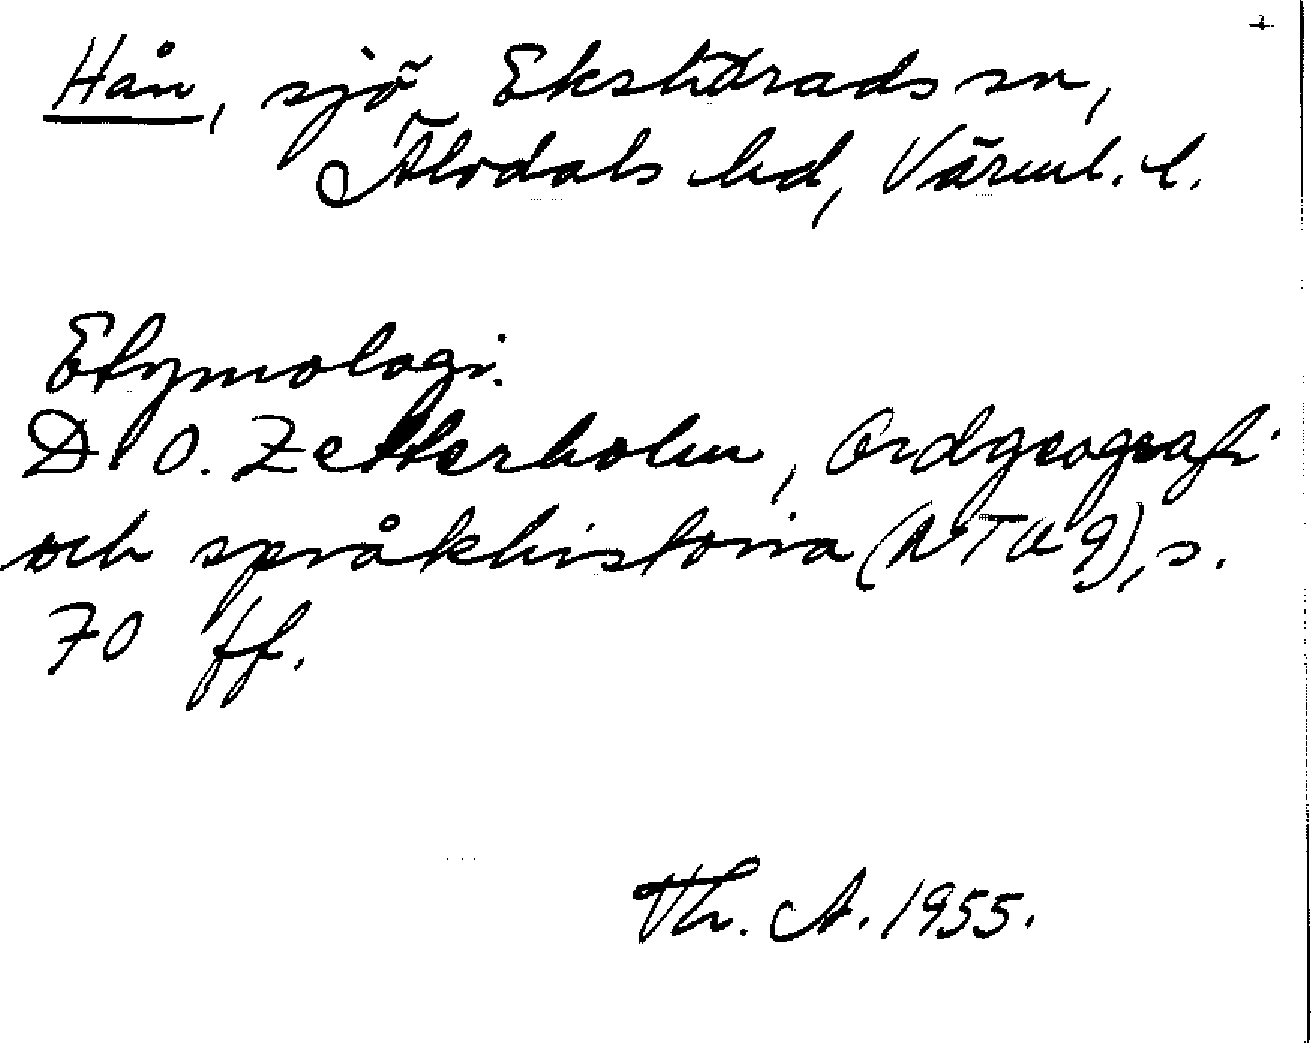 +
Hån, sjö, Ekshärads sn,
Älvdals hd, Värml. l.
Etymologi.
D. O. Zetterholm, Ordgeografi
och språkhistoria (NTU 9), s.
70 ff.
Th. A. 1955.